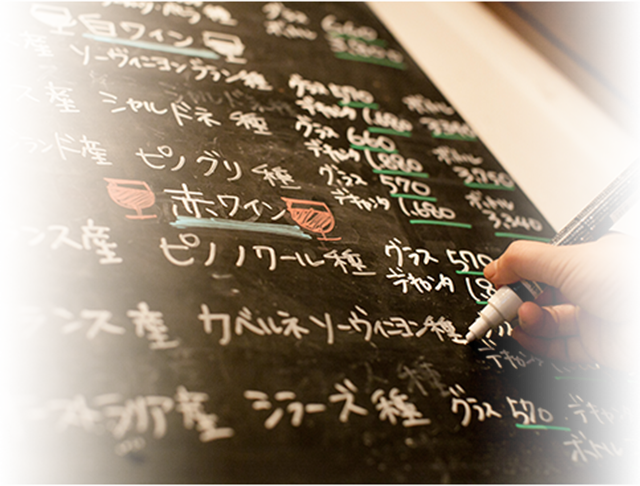 グラス 660
白ワイン ボトル
ソーヴィニヨンブラン種 グラス 570
デキャンタ 1,680 ボトル
ス産 シャルドネ種 グラス 660
デキャンタ 1,880 ボトル 3,750
ランド産 ピノグリ種 グラス 570
デキャンタ 1,680 ボトル 3,340
赤ワイン
ンス産 ピノノワール種 グラス 570
デキャンタ
ランス産 カベルネソーヴィニヨン種
デキャンタ
ストラリア産 シラーズ種 グラス 570 デキャ
ボトル